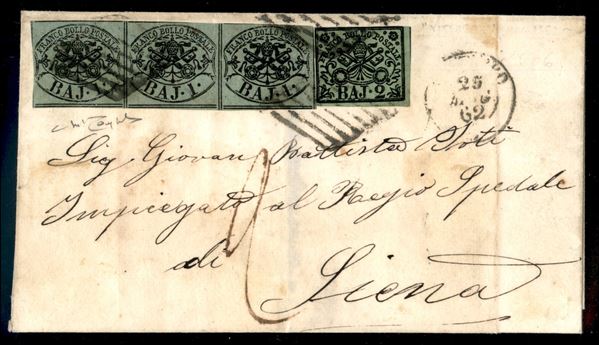 FRANCO BOLLO POSTALE FRANCO BOLLO POSTALE FRANCO BOLLO POSTALE
BAJ. 1. BAJ. 1. BAJ. 1. BAJ. 2
25
62
Sig Giovan Battista
Impiegato al Regio Spedale
di
Siena